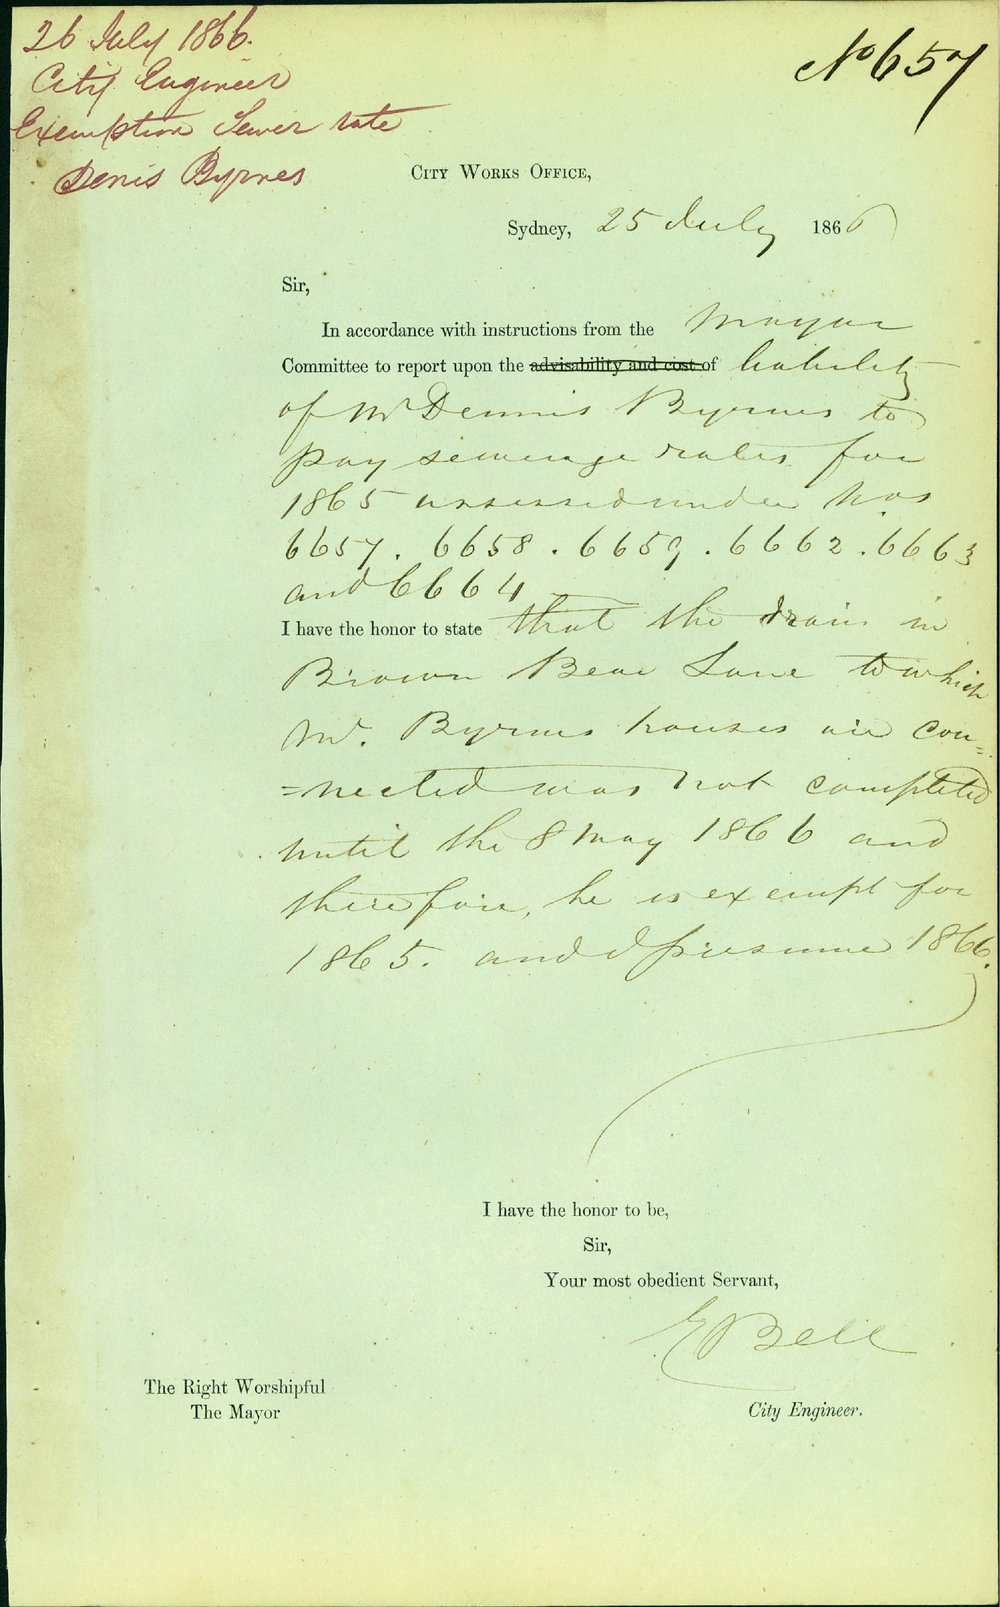 26 July 1866.
City Engineer
Exemption Sewer rate
Denis Byrnes
No 657
City Works Office,
Sydney, 25 July 1866
Sir,
In accordance with instructions from the Mayor
Committee to report upon the advisability and cost of liability
of Mr Dennis Byrnes to
pay sewerage rates for
1865 assessed under Nos
6657. 6658. 6659. 6662. 6663
and 6664
I have the honor to state that the drain in
Brown Bear Lane to which
Mr. Byrnes houses are con=
=nected was not completed
until the 8 May 1866 and
therefore, he is exempt for
1865. and I presume 1866.
I have the honor to be,
Sir,
Your most obedient Servant,
E Bell
City Engineer.
The Right Worshipful
The Mayor